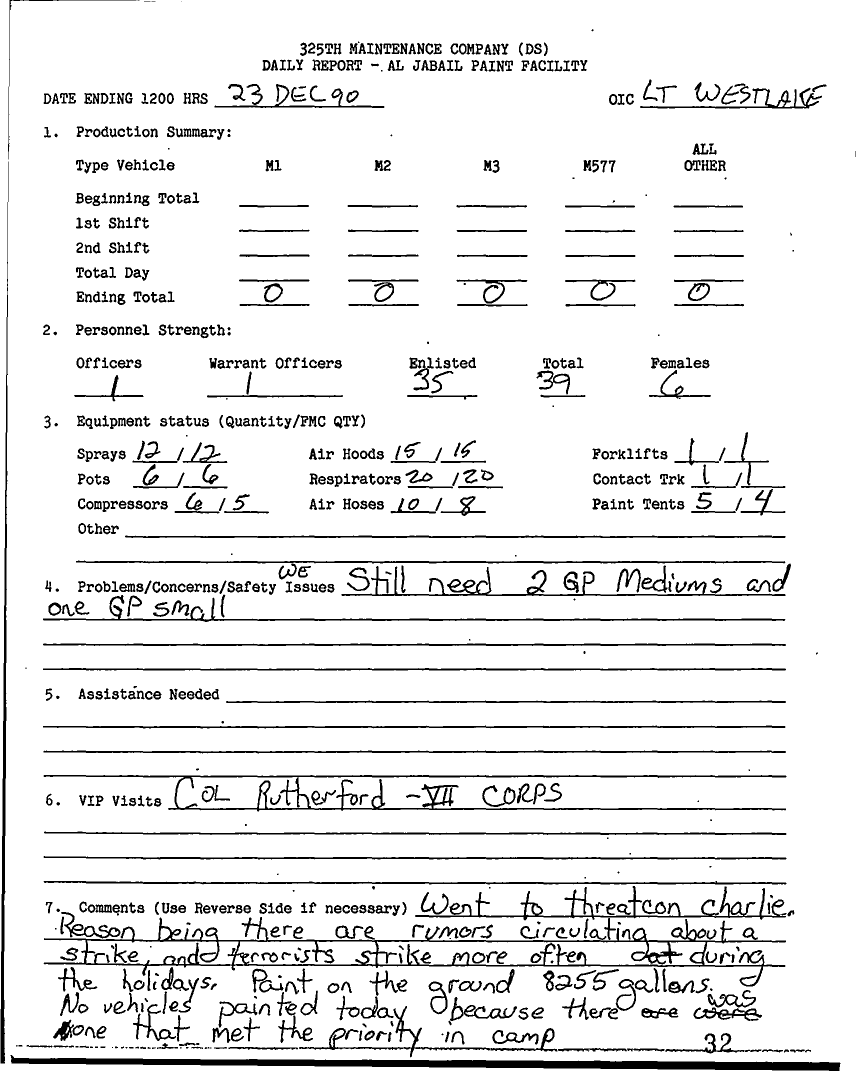 325TH MAINTENANCE COMPANY (DS)
DAILY REPORT - AL JABAIL PAINT FACILITY
DATE ENDING 1200 HRS 23 DEC 90 OIC LT WESTLAKE
1. Production Summary:
ALL
Type Vehicle M1 M2 M3 M577 OTHER
Beginning Total
1st Shift
2nd Shift
Total Day
Ending Total 0 0 0 0 0
2. Personnel Strength:
Officers Warrant Officers Enlisted Total Females
1 1 35 39 6
3. Equipment status (Quantity/FMC QTY)
Sprays 12 / 12 Air Hoods 15 / 15 Forklifts 1 / 1
Pots 6 / 6 Respirators 20 / 20 Contact Trk 1 / 1
Compressors 6 / 5 Air Hoses 10 / 8 Paint Tents 5 / 4
Other
WE
4. Problems/Concerns/Safety Issues Still need 2 GP Mediums and
one GP small
5. Assistance Needed
6. VIP Visits COL Rutherford - VII CORPS
7. Comments (Use Reverse Side if necessary) Went to threatcon charlie.
Reason being there are rumors circulating about a
strike, and terrorists strike more often during
the holidays. Paint on the ground 8255 gallons.
No vehicles painted today because there are were was
none that met the priority in camp 32